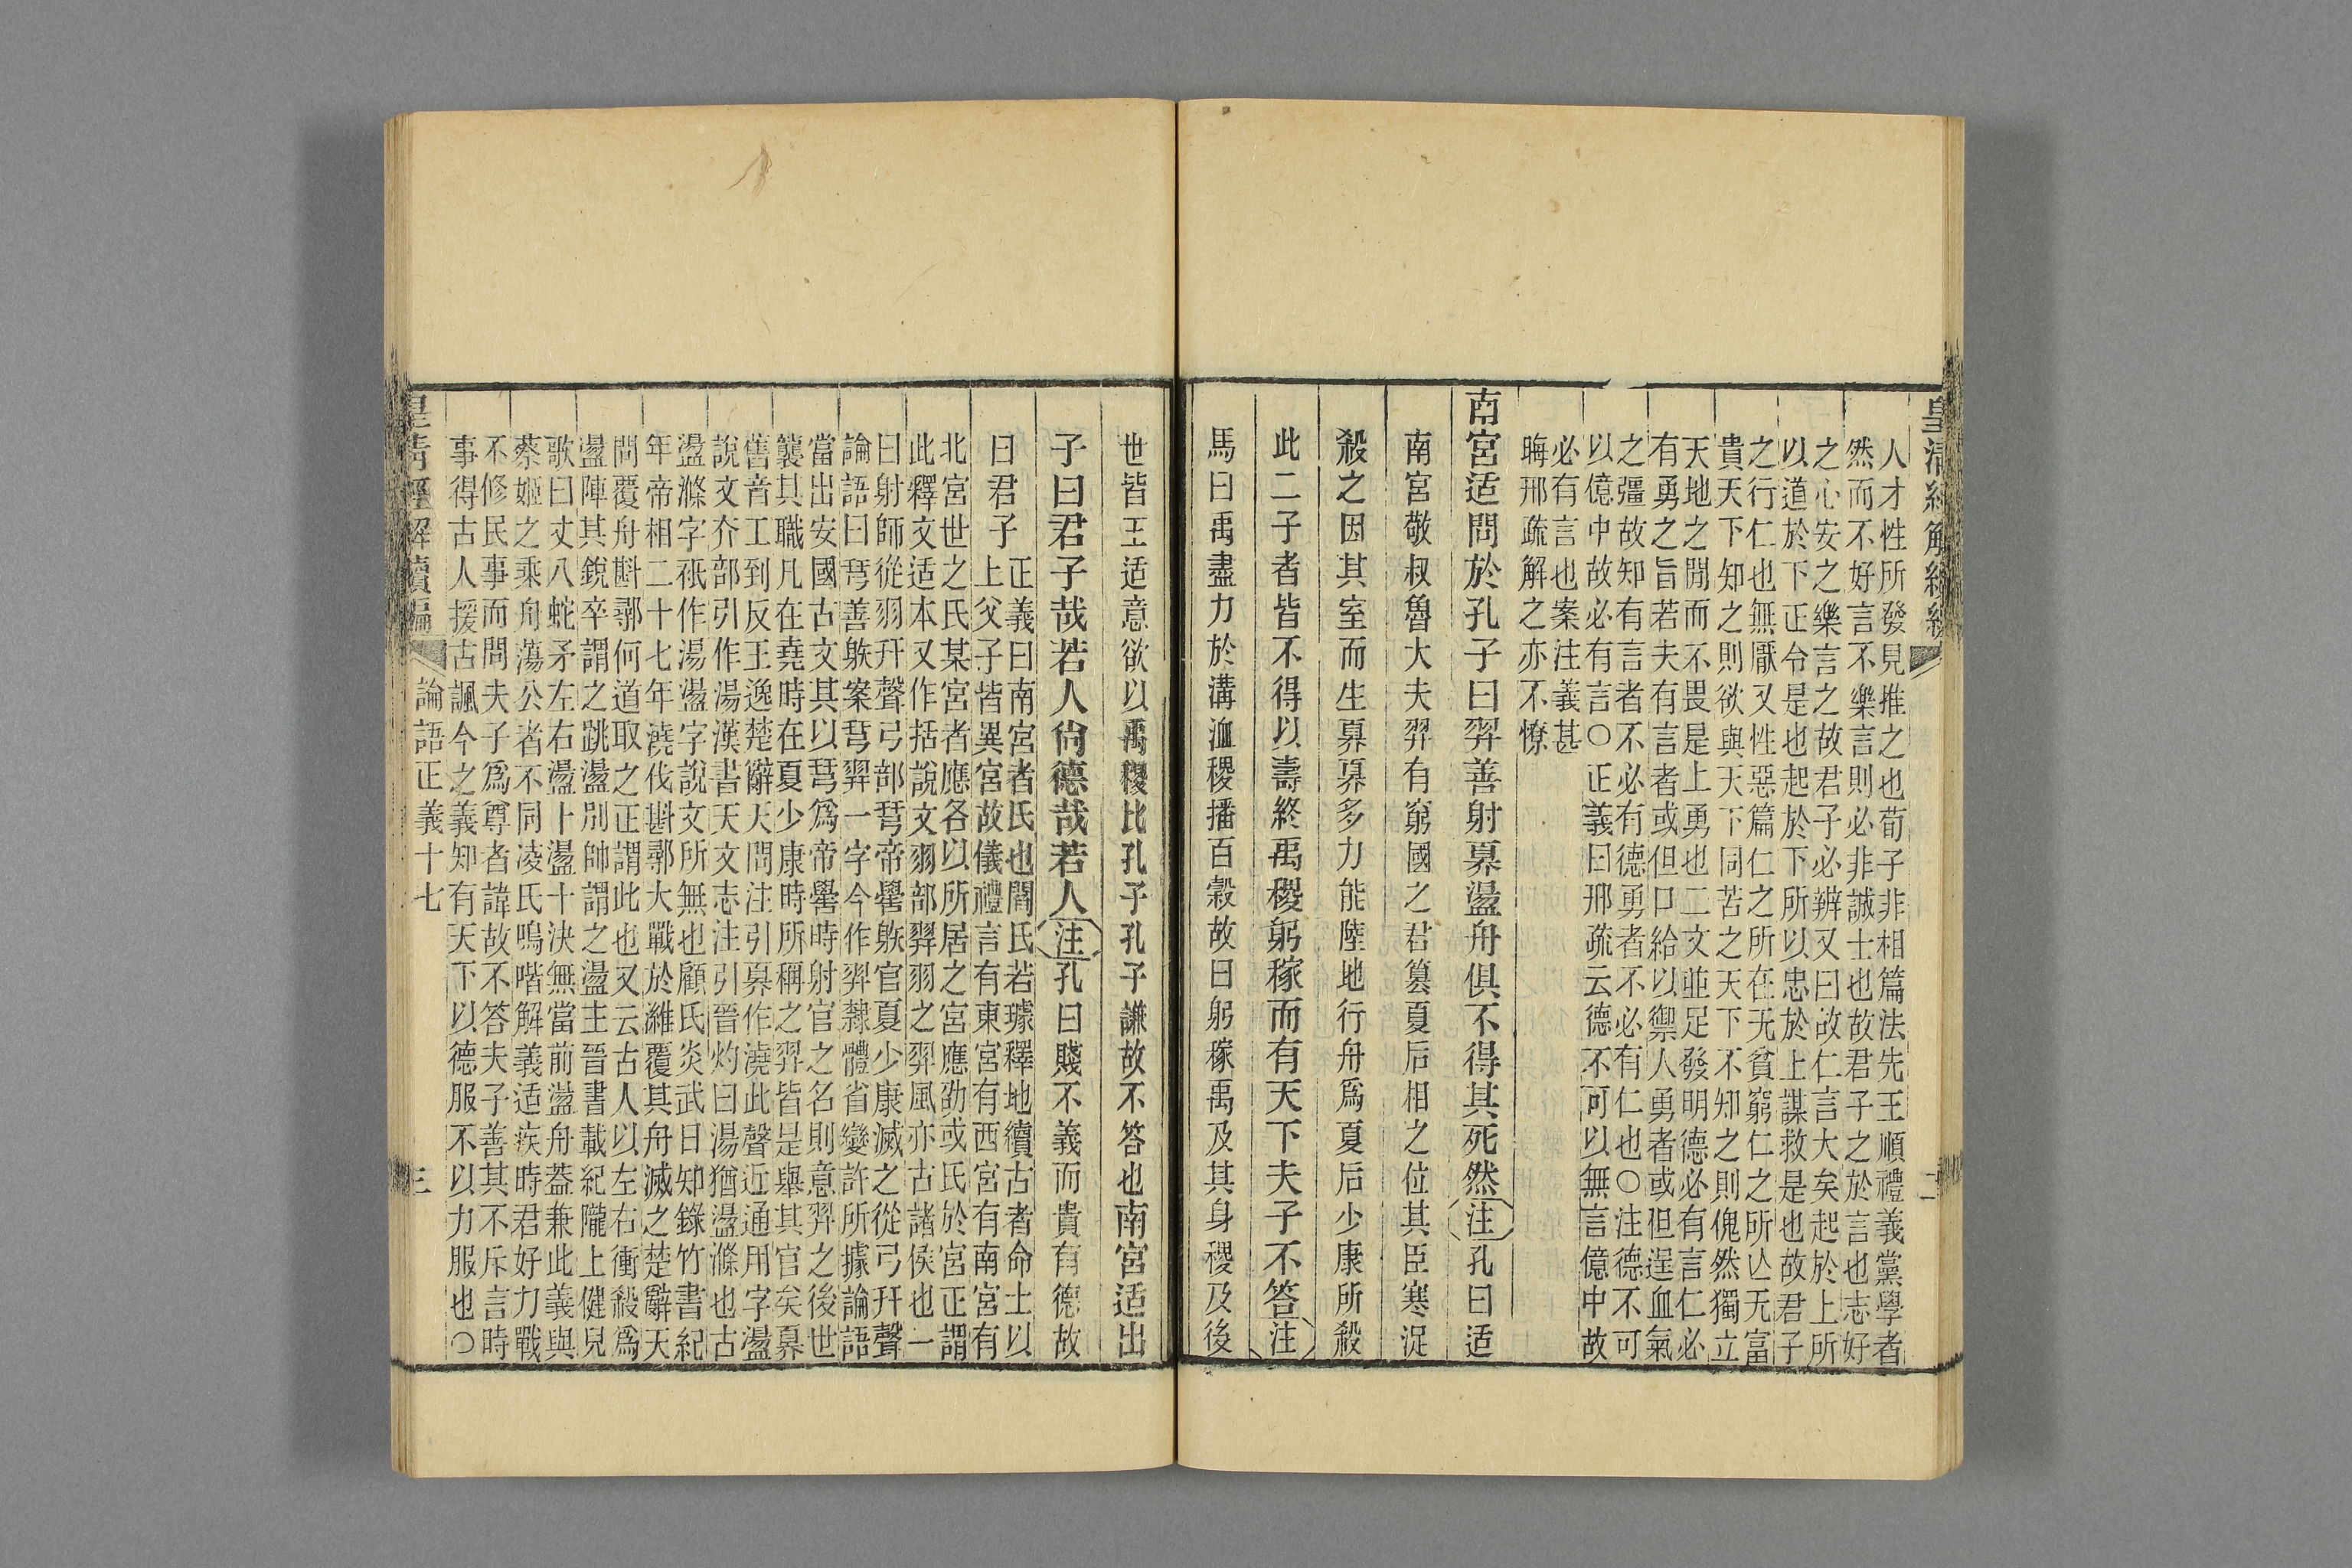 皇清經解續編
人才性所發見推之也荀子非相篇法先王順禮義黨學者
然而不好言不樂言則必非誠士也故君子之於言也志好
之心安之樂言之故君子必辨又曰故仁言大矣起於上所
以道於下正令是也起於下所以忠於上謀救是也故君子
之行仁也無厭又性惡篇仁之所在无貧窮仁之所亾无富
貴天下知之則欲與天下同苦之天下不知之則傀然獨立
天地之閒而不畏是上勇也二文並足發明德必有言仁必
有勇之旨若夫有言者或但口給以禦人勇者或但逞血氣
之彊故知有言者不必有德勇者不必有仁也〇注德不可
以億中故必有言〇正義曰邢疏云德不可以無言億中故
必有言也案注義甚
晦邢疏解之亦不憭
南宮适問於孔子曰羿善射奡盪舟俱不得其死然注孔曰适
南宮敬叔魯大夫羿有窮國之君篡夏后相之位其臣寒浞
殺之因其室而生奡奡多力能陸地行舟爲夏后少康所殺
此二子者皆不得以壽終禹稷躬稼而有天下夫子不答注
馬曰禹盡力於溝洫稷播百穀故曰躬稼禹及其身稷及後
世皆王适意欲以禹稷比孔子孔子謙故不答也南宮适出
子曰君子哉若人尙德哉若人注孔曰賤不義而貴有德故
曰君子
正義曰南宮者氏也閻氏若璩釋地續古者命士以
上父子皆異宮故儀禮言有東宮有西宮有南宮有
北宮世之氏某宮者應各以所居之宮應劭或氏於宮正謂
此釋文适本又作括說文羽部羿羽之羿風亦古諸侯也一
曰射師從羽幵聲弓部𢎗帝嚳躲官夏少康滅之從弓幵聲
論語曰𢎗善躲案𢎗羿一字今作羿隸體省變許所據論語
當出安國古文其以𢎗爲帝嚳時射官之名則意羿之後世
襲其職凡在堯時在夏少康時所稱之羿皆是舉其官矣奡
舊音工到反王逸楚辭天問注引奡作澆此聲近通用字盪
說文夰部引作湯漢書天文志注引晉灼曰湯猶盪滌也古
盪滌字祇作湯盪字說文所無也顧氏炎武日知錄竹書紀
年帝相二十七年澆伐斟鄩大戰於濰覆其舟滅之楚辭天
問覆舟斟鄩何道取之正謂此也又云古人以左右衝殺爲
盪陣其銳卒謂之跳盪別帥謂之盪主晉書載紀隴上健兒
歌曰丈八蛇矛左右盪十盪十決無當前盪舟葢兼此義與
蔡姬之乘舟蕩公者不同凌氏鳴喈解義适疾時君好力戰
不修民事而問夫子爲尊者諱故不答夫子善其不斥言時
事得古人援古諷今之義知有天下以德服不以力服也〇
皇清經解續編 論語正義十七 三